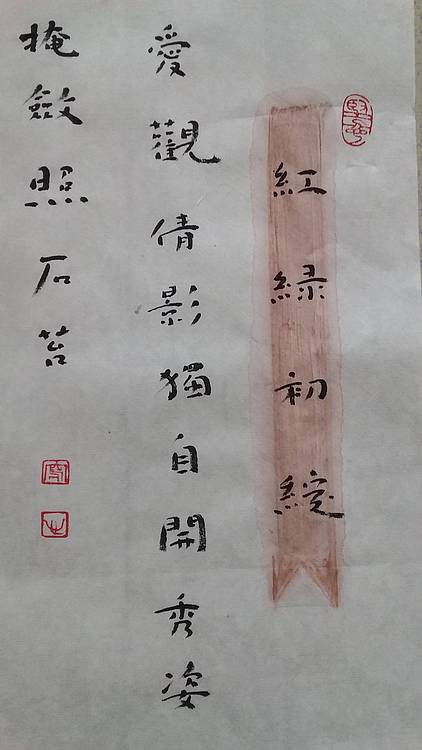 紅綠初綻
愛觀倩影獨自開秀姿
掩斂照石苔